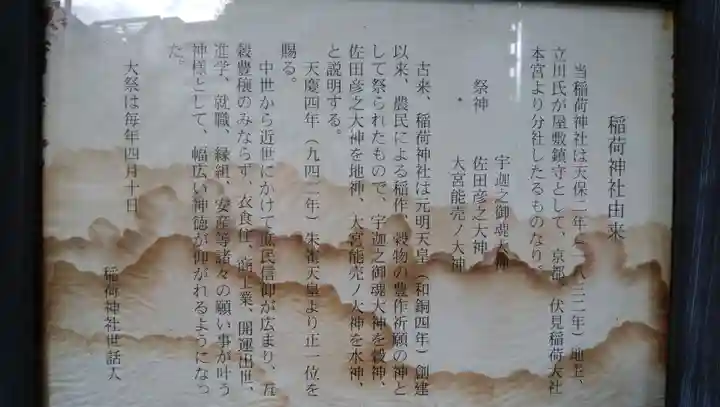 稲荷神社由来
当稲荷神社は天保二年(一八三二年)地主、
立川氏が屋敷鎮守として、京都、伏見稲荷大社
本宮より分社したるものなり。
祭神
宇迦之御魂大神
佐田彦之大神
大宮能売ノ大神
古来、稲荷神社は元明天皇(和銅四年)創建
以来、農民による稲作、穀物の豊作祈願の神と
して祭られたもので、宇迦之御魂大神を穀神、
佐田彦之大神を地神、大宮能売ノ大神を水神、
と説明する。
天慶四年(九四二年)朱雀天皇より正一位を
賜る。
中世から近世にかけて庶民信仰が広まり、五
穀豊穣のみならず、衣食住、商工業、開運出世、
進学、就職、縁組、安産等諸々の願い事が叶う
神様として、幅広い神徳が仰がれるようになっ
た。
大祭は毎年四月十日
稲荷神社世話人